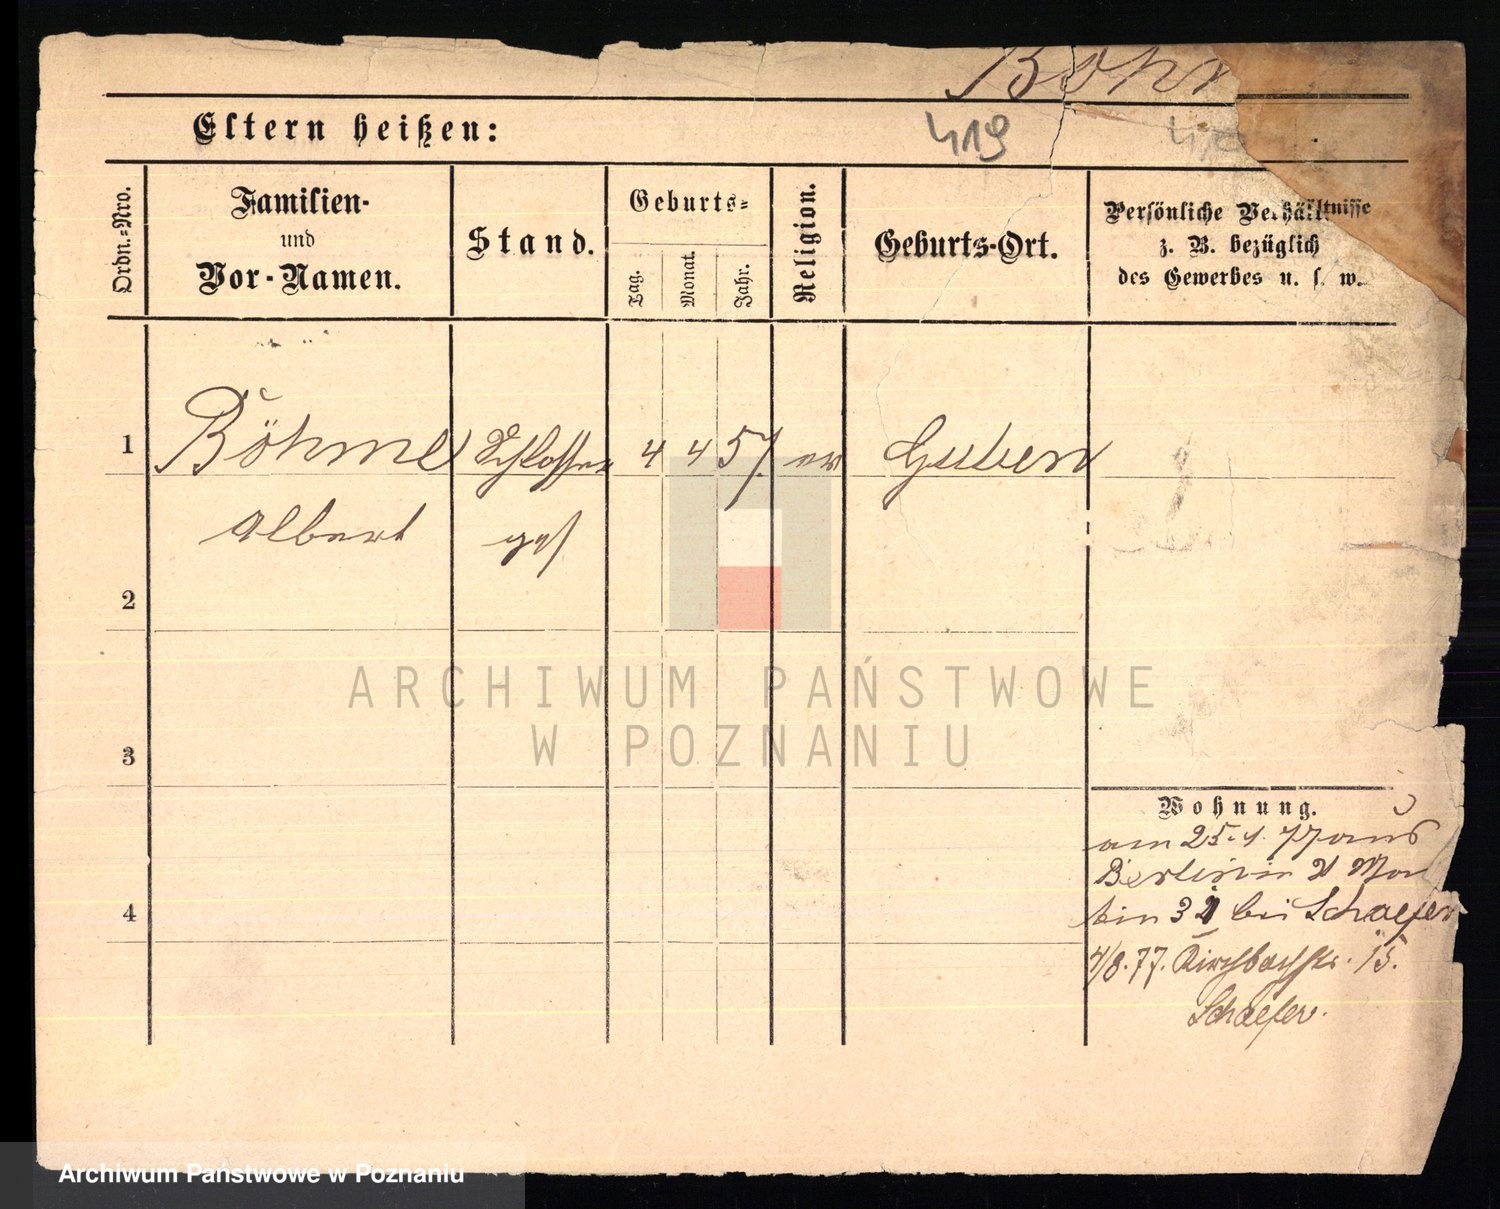 Böhm
Eltern heißen:
419
Ordn.-Nro.
Familien-
und
Vor-Namen.
Stand.
Geburts-
Tag. Monat. Jahr.
Religion.
Geburts-Ort.
Persönliche Verhältnisse
z. B. bezüglich
des Gewerbes u. s. w.
1 Böhme Schlosser 4 4 57. ev Guben
Albert ges
2
3
4
ARCHIWUM PAŃSTWOWE
W POZNANIU
Wohnung.
am 25.4. 77 aus
Berlin in St Mar
tin 32 bei Schaefer
4/8.77. Kirchbachstr. 15.
Schaefer.
Archiwum Państwowe w Poznaniu